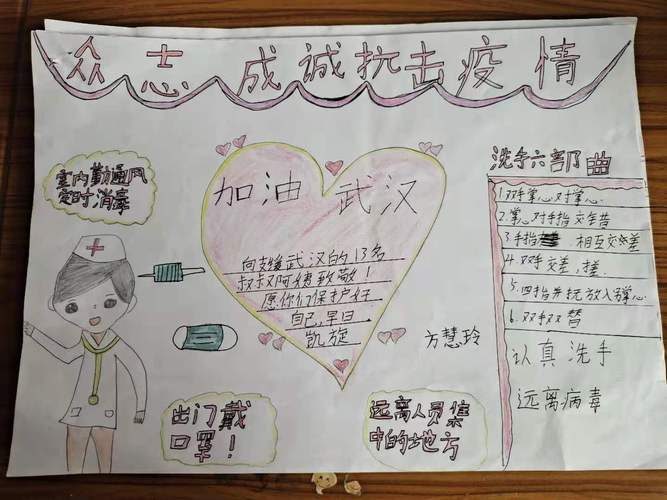 众志成诚抗击疫情
室内勤通风
定时消毒
加油 武汉
向支援武汉的13名
叔叔阿姨致敬！
愿你们保护好
自己，早日
凯旋
方慧玲
出门戴
口罩！
远离人员集
中的地方
洗手六部曲
1.双手掌心对掌心.
2.掌心对手指交错
3.手指 相互交差
4.双手交差，搓
5.四指并拢放入掌心
6.双手双替
认真洗手
远离病毒